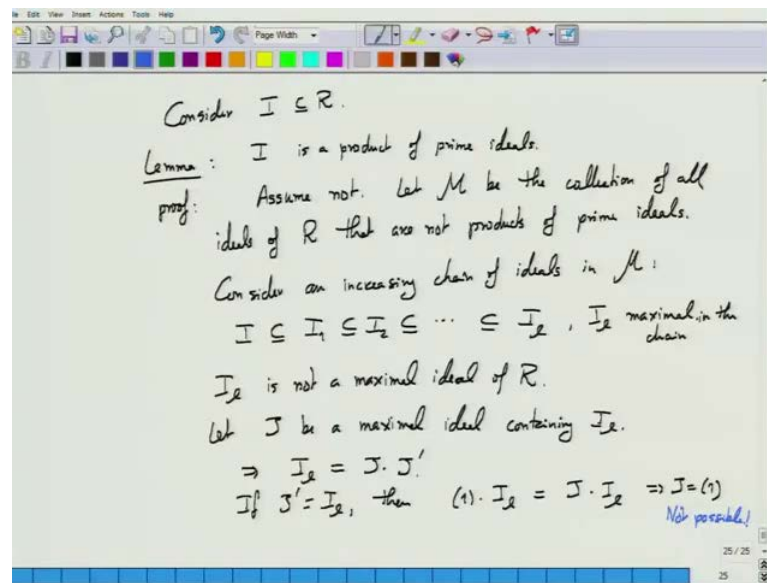 Edit View Insert Actions Tools Help
Page Width
B I
Consider I ⊆ R.
Lemma : I is a product of prime ideals.
proof: Assume not. Let M be the collection of all
ideals of R that are not products of prime ideals.
Consider an increasing chain of ideals in M :
I ⊆ I₁ ⊆ I₂ ⊆ ... ⊆ I_ℓ , I_ℓ maximal in the
chain
I_ℓ is not a maximal ideal of R.
Let J be a maximal ideal containing I_ℓ.
⇒ I_ℓ = J. J!
If J' = I_ℓ, then (1). I_ℓ = J . I_ℓ ⇒ J = (1)
Not possible!
25 / 25
25